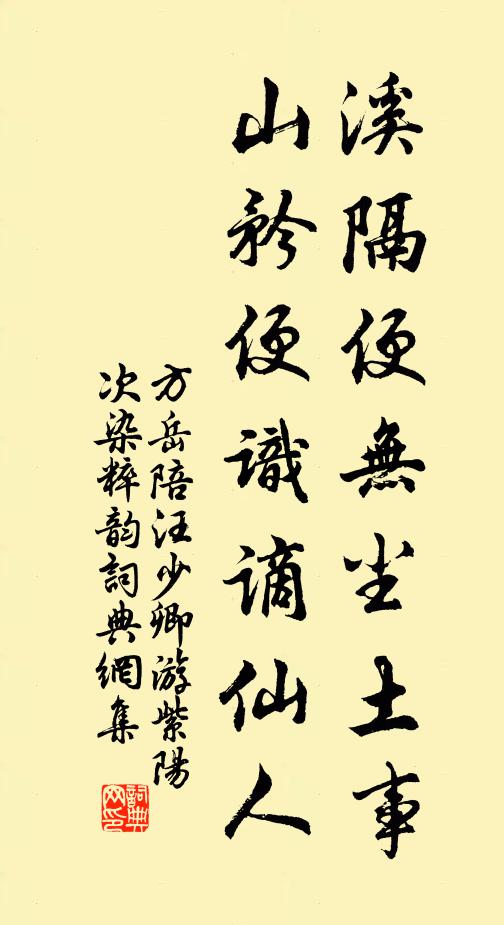 溪隔便無尘土事
山矜便識谪仙人
方岳陪汪少卿游紫陽
次染粹韵詞典網集
詞典网印